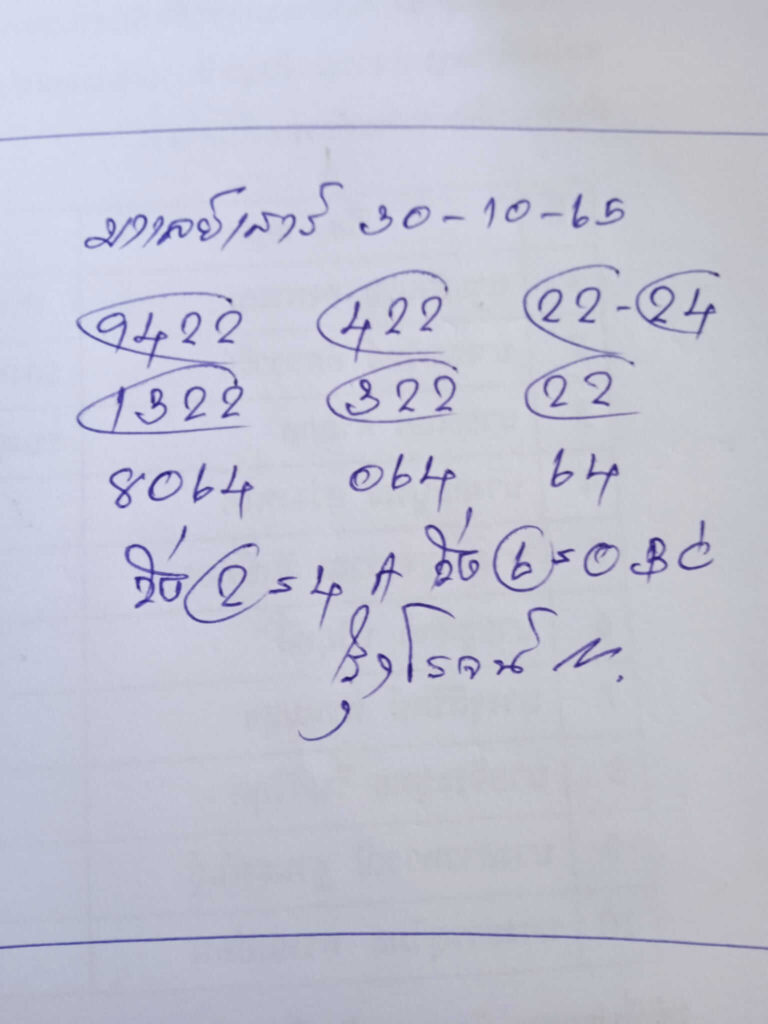 มาเลย์/เสาร์ 30-10-65
9422 422 22-24
1322 322 22
8064 064 64
วิ่ง 2 = 4 A วิ่ง 6 = 0 B C
รุ่งโรจน์ N.